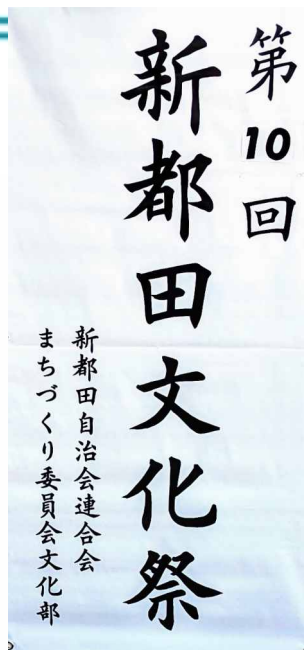 第10回
新都田文化祭
新都田自治会連合会
まちづくり委員会文化部